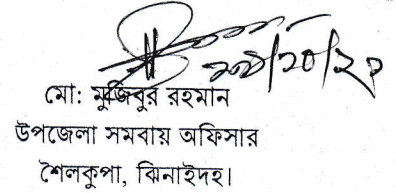 মো: মুজিবুর রহমান
উপজেলা সমবায় অফিসার
শৈলকুপা, ঝিনাইদহ।